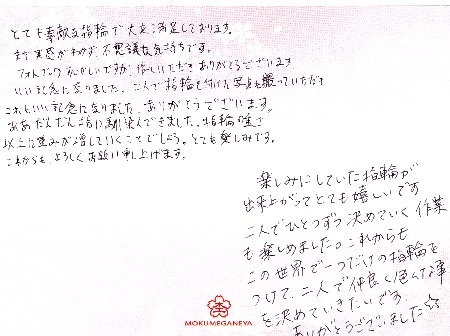 とても素敵な指輪で大変満足しております。
まだ実感がわかず、不思議な気持ちです。
フォトブック 恥かしいですが、作っていただきありがとうございます
いい記念になりました。二人で指輪を付けた写真も撮っていただけ
これもいい記念になりました。ありがとうございます。
ああだんだん指に馴染んできました、指輪の重さ
以上に重みが増していくことでしょう。とても楽しみです。
これからも、よろしくお願い申し上げます。
楽しみにしていた指輪が
出来上がってとても嬉しいです
二人でひとつずつ決めていく作業
も楽しめました。これからも
この世界で一つだけの指輪を
つけて、二人で仲良く色んな事
を決めていきたいです。
ありがとうございました☆
MOKUMEGANEYA